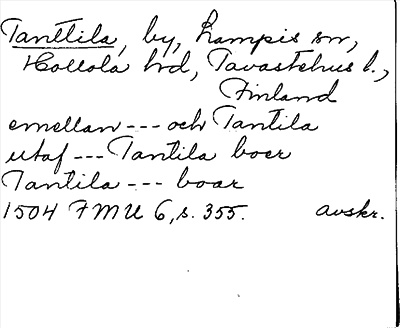 Tanttila, by, Lampis sn,
Hollola hd, Tavastehus l.,
Finland
emellan --- och Tantila
utaf --- Tantila boer
Tantila --- boar
1504 FMU 6, s. 355. avskr.